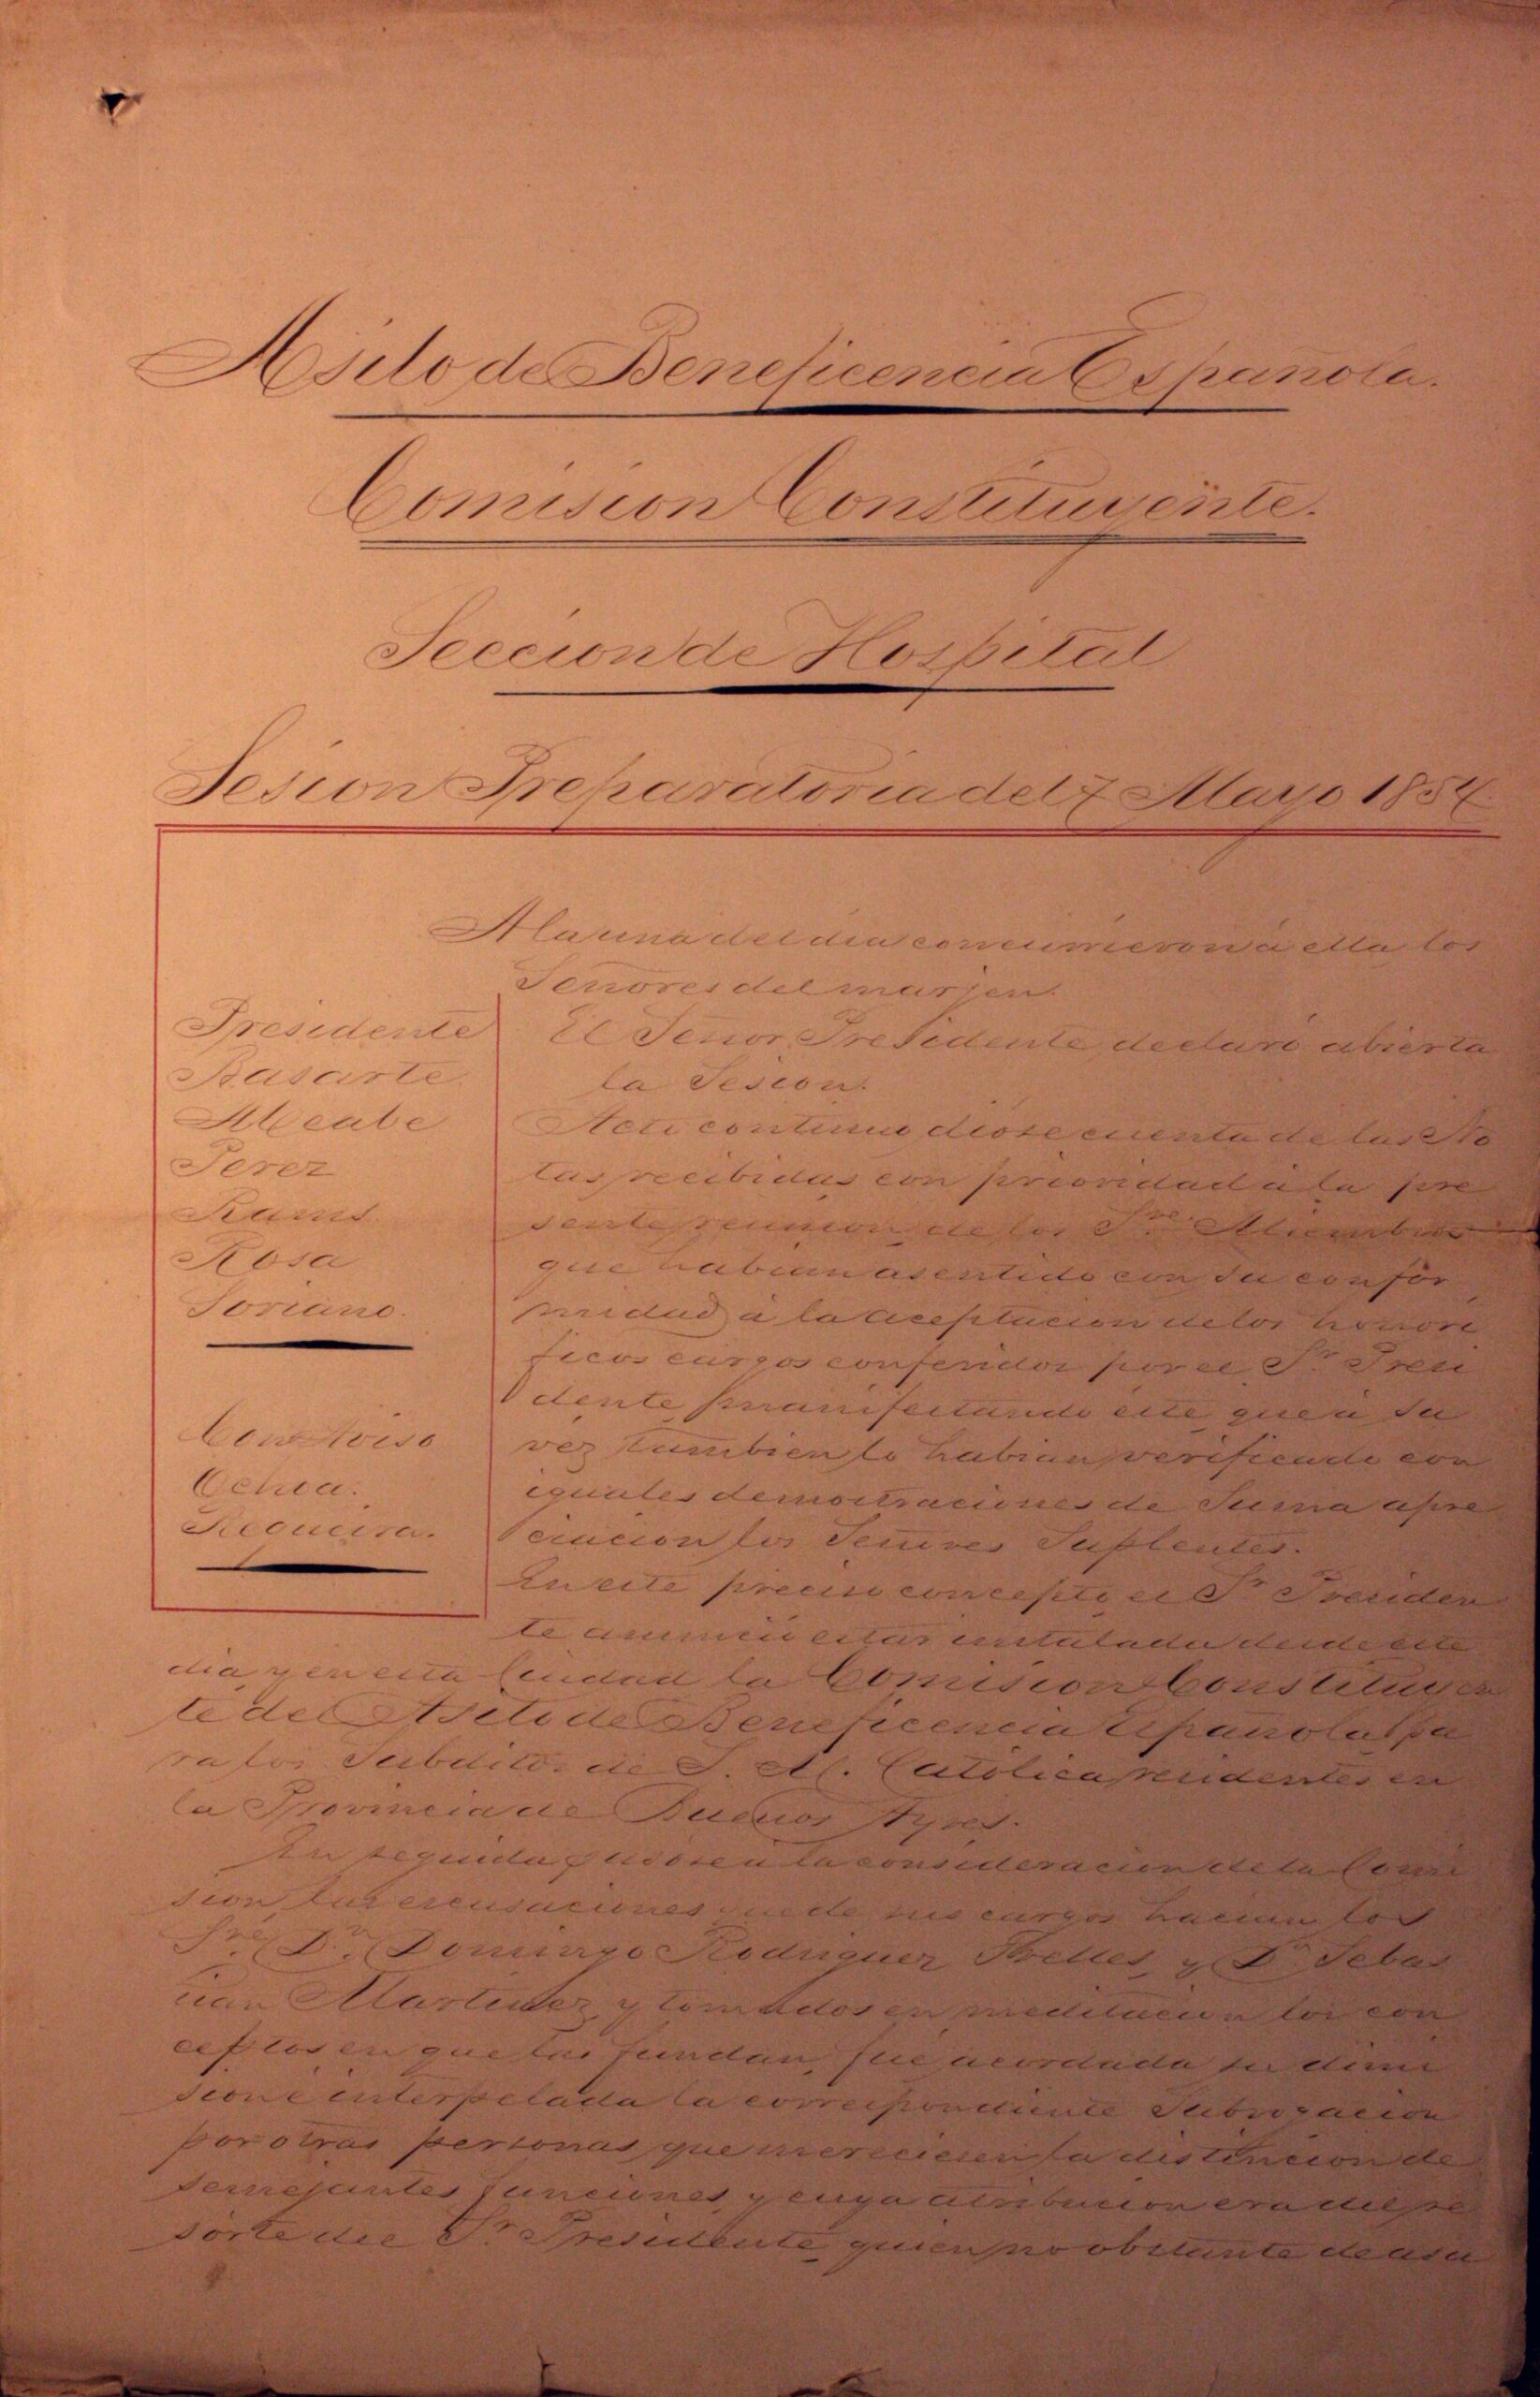 Asilo de Beneficencia Española.
Comision Constituyente.
Seccion de Hospital
Sesion Preparatoria del 7 Mayo 1854.
A la una del dia concurrieron a ella los
Señores del marjen.
Presidente
Basarte.
Alceabe
Perez
Rams.
Rosa
Soriano.
Con Aviso
Ochoa.
Requeira.
El Señor Presidente declaró abierta
la Sesion.
Acto continuo diose cuenta de las No
tas recibidas con prioridad á la pre
sente reunion de los Sres Miembros
que habian asentido con su confor
midad á la aceptacion de los honori
ficos cargos conferidos por el Sr Presi
dente manifestando este que á su
vez tambien lo habian verificado con
iguales demostraciones de suma apre
ciacion los Señores Suplentes.
En este preciso concepto el Sr Presiden
te anunció estar instalada desde este
dia y en esta Ciudad la Comision Constituyen
te del Asilo de Beneficencia Española pa
ra los Subditos de S. M. Católica residentes en
la Provincia de Buenos Ayres.
En seguida pusose a la consideracion de la Comi
sion las escusaciones que de sus cargos hacian los
Sres Dn Domingo Rodriguez Trelles, y Dn Sebas
tian Martinez y tomados en meditacion los con
ceptos en que las fundan, fue acordada su dimi
sion é interpelada la correspondiente Subrogacion
por otras personas que mereciesen la distincion de
semejantes funciones, y cuya atribucion era del re
sorte del Sr Presidente quien no obstante de